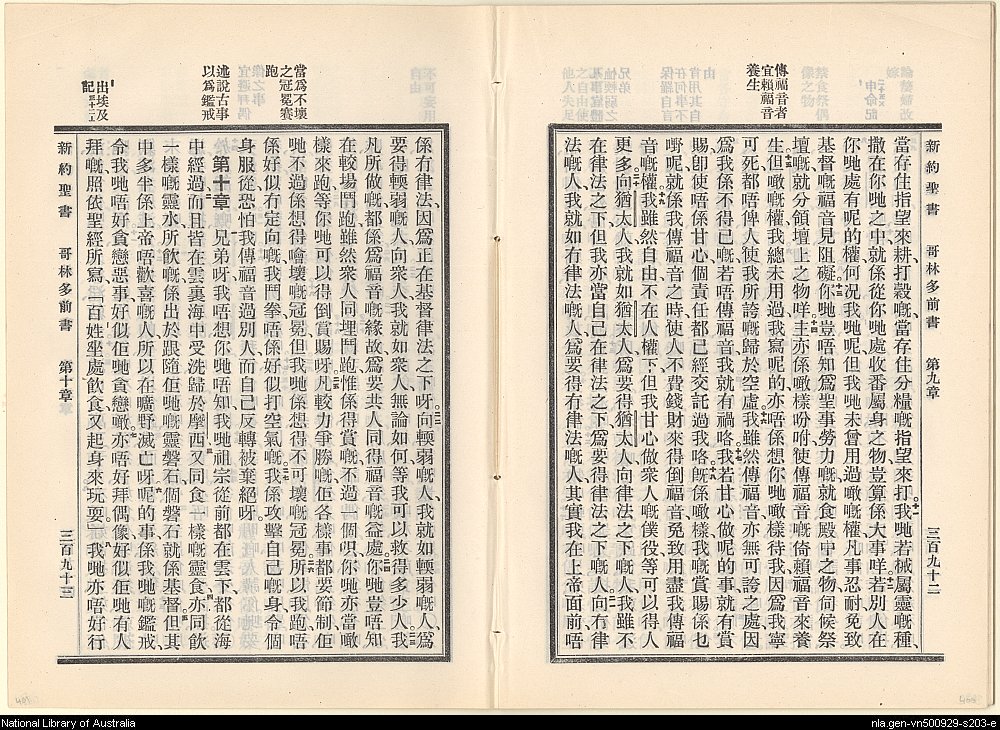 傳福音者
宜賴福音
養生
新約聖書 哥林多前書 第九章 三百九十二
當存住指望來耕、打穀嘅、當存住分糧嘅指望來打。十一我哋若械屬靈嘅種、
撒在你哋之中、就係從你哋處收番屬身之物、豈算係大事咩。十二若別人在
你哋處有呢的權、何况我哋呢、但我哋未曾用過噉嘅權、凡事忍耐、免致
基督嘅福音見阻礙。十三你哋豈唔知爲聖事勞力嘅、就食殿中之物、伺候祭
壇嘅、就分領壇上之物咩。十四主亦係噉樣吩咐、使傳福音嘅、倚賴福音來養
生。十五但噉嘅權、我總未用過、我寫呢的、亦唔係想你哋噉樣待我、因爲我寧
可死、都唔俾人使我所誇嘅歸於空虛。十六我雖然傳福音、亦無可誇之處、因
爲我係不得已嘅、若唔傳福音、我就有禍咯。十七我若甘心做呢的事、就有賞
賜、卽使唔係甘心、個責任都已經交託過我咯。十八旣係噉樣、我嘅賞賜係乜
嘢呢、就係我傳福音之時、使人不費錢財來得倒福音、免致用盡我傳福
音嘅權。十九我雖然自由、不在人權下、但我甘心做衆人嘅僕役、等可以得人
更多。二十向猶太人、我就如猶太人、爲要得猶太人、向律法之下嘅人、我雖不
在律法之下、但我亦當自己在律法之下、爲要得律法之下嘅人。二一向有律
法嘅人、我就如有律法嘅人、爲要得有律法嘅人、其實我在上帝面前唔
當爲不壞
之冠冕賽
跑
述說古事
以爲鑑戒
出埃及
記
新約聖書 哥林多前書 第十章 三百九十三
係有律法、因爲正在基督律法之下呀。二二向輭弱嘅人、我就如輭弱嘅人、爲
要得輭弱嘅人、向衆人、我就如衆人、無論如何、等我可以救得多少人。二三我
凡所做嘅、都係爲福音嘅緣故、爲要共人同得福音嘅益處。二四你哋豈唔知
在較場鬥跑、雖然衆人同埋鬥跑、惟係得賞嘅、不過一個唄、你哋亦當噉
樣來跑、等你哋可以得倒賞賜呀。二五凡較力爭勝嘅、佢各樣事都要節制、佢
哋不過係想得噲壞嘅冠冕、但我哋係想得不可壞嘅冠冕。二六所以我跑、唔
係好似有定向嘅、我鬥拳、唔係好似打空氣嘅。二七我係攻擊自己嘅身、令個
身服從、恐怕我傳福音過別人、而自己反轉被棄絕呀。
第十章 一兄弟呀、我唔想你哋唔知、我哋祖宗從前都在雲下、都從海
中經過、二而且皆在雲裏海中受洗歸於摩西、三又同食一樣嘅靈食、四亦同飲
一樣嘅靈水、所飲嘅、係出於跟隨佢哋嘅靈磐石、個磐石就係基督。五但其
中多半係上帝唔歡喜嘅人、所以在曠野滅亡呀。六呢的事係我哋嘅鑑戒、
令我哋唔好貪戀惡事、好似佢哋貪戀噉。七亦唔好拜偶像、好似佢哋有人
拜嘅、照依聖經所寫、「百姓坐處飮食、又起身來玩耍」。八我哋亦唔好行
National Library of Australia
nla.gen-vn500929-s203-e